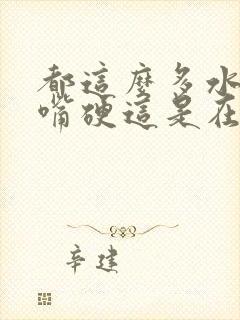 都這麼多水
嘴硬這是在
辛建